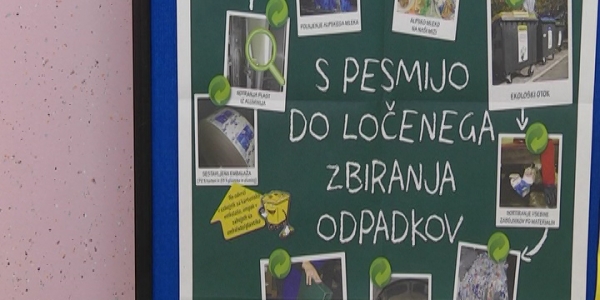 POLNJENJE ALPSKEGA MLEKA
ALPSKO MLEKO
NA NAŠI MIZI
NOTRANJA PLAST
IZ ALUMINIJA
EKOLOŠKI OTOK
S PESMIJO
DO LOČENEGA
ZBIRANJA
ODPADKOV
SESTAVLJENA EMBALAŽA
SORTIRANJE VSEBINE
ZABOJNIKOV PO MATERIALIH